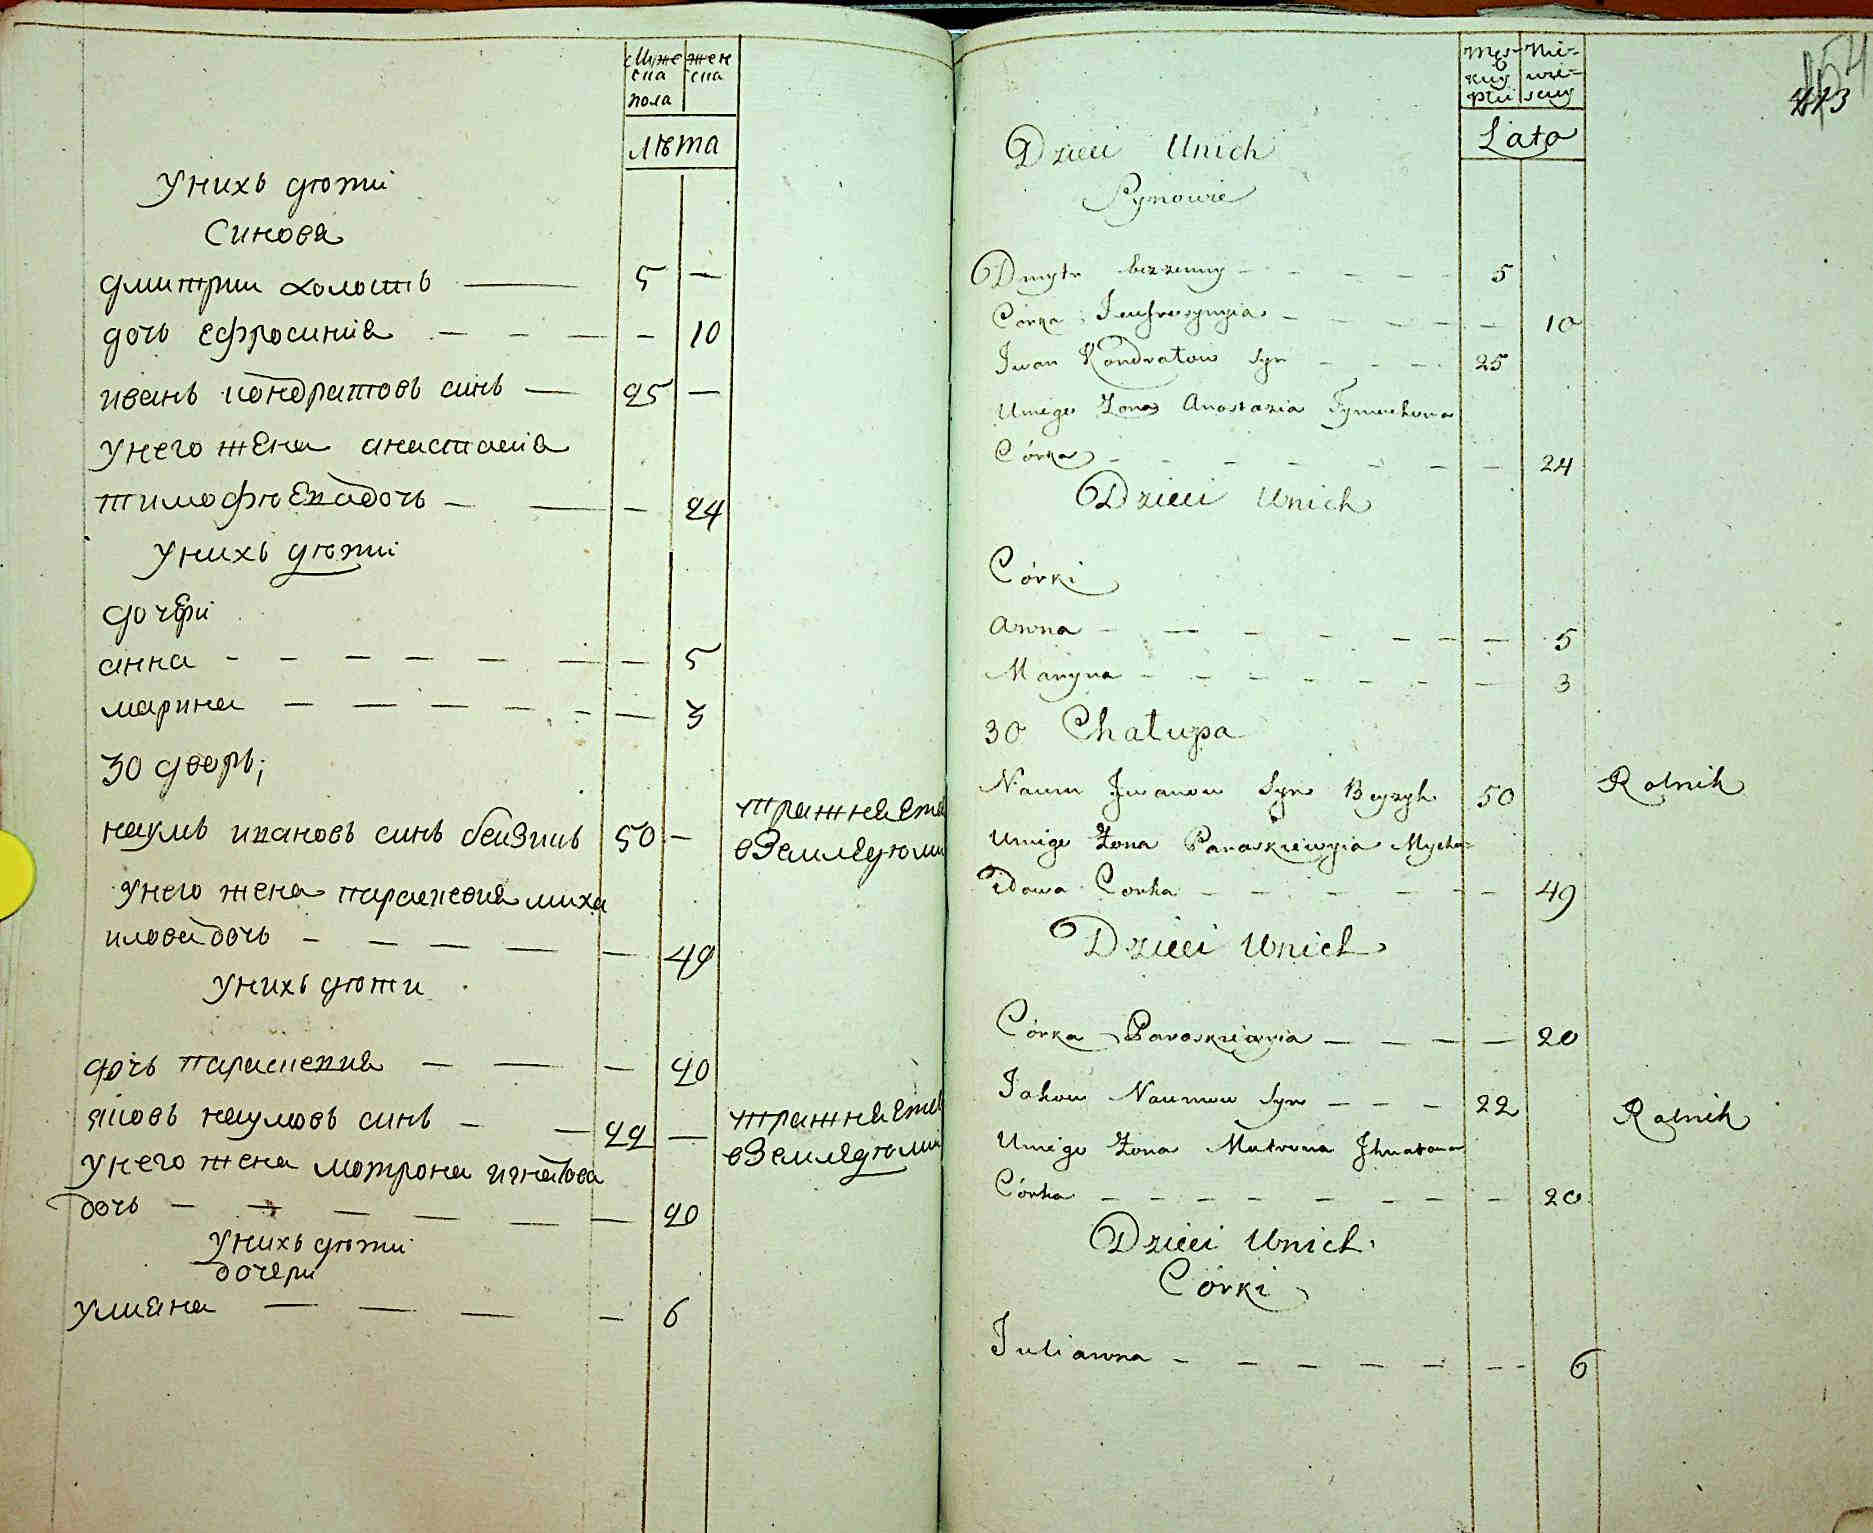 Мужеска пола | женска
лѣта
Унихъ дѣти
Синовя
дмитрии холостъ — 5 —
дочь ефросиния — — — — 10
иванъ кондратовъ синъ — 25 —
унего жена анастасия
тимофѣева дочь — — — 24
Унихъ дѣти
дочери
анна - - - - - - — — 5
марина — — — — - - — 3
30 дворъ;
наумъ ивановъ синъ бейзикъ 50 — упражняется
в земледѣлии
унего жена параскевия миха
илова дочь — — — — — 49
Унихъ дѣти
дочь параскевия — — — 20
яковъ наумовъ синъ — — 22 — упражняется
в земледѣлии
унего жена мотрона игнатова
дочь — — — — — — 20
унихъ дѣти
дочери
улияна — — — — 6
Męskiey płci | Niewieściey
Lata
Dzieci Unich
Synowie
Dmytr bezzenny - - - - - 5
Córka Jeufrosynyia - - - - - - 10
Jwan Kondratow Syn - - - - 25
Uniego Żona Anastazia Tymochowa
Córka - - - - - - - 24
Dzieci Unich
Córki
Anna - - - - - - - 5
Maryna - - - - - - - 3
30 Chałupa
Naum Jwanow Syn Beyzyk 50 Rolnik
Uniego Żona Paraskiewyia Mycha=
łowa Corka - - - - - - 49
Dzieci Unich
Córka Paraskiewia - - - - 20
Jakow Naumow Syn - - - 22 Rolnik
Uniego Żona Matrona Jhnatowa
Córka - - - - - - - - 20
Dzieci Unich
Córki
Julianna - - - - - - - 6